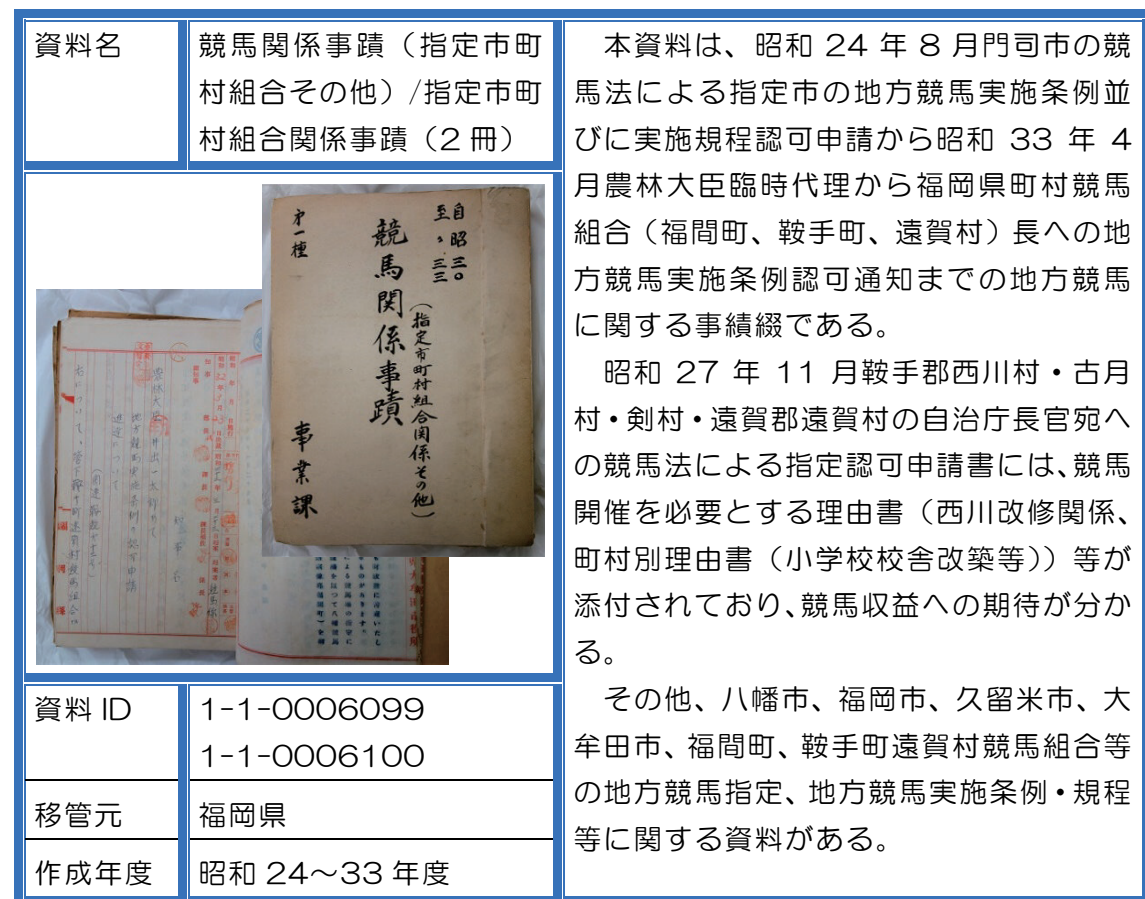 資料名
競馬関係事蹟（指定市町
村組合その他）/指定市町
村組合関係事蹟（2冊）
自昭三〇
至〃三三
競馬関係事蹟
（指定市町村組合関係その他）
第一種
事業課
資料ID
1-1-0006099
1-1-0006100
移管元
福岡県
作成年度
昭和 24～33 年度
本資料は、昭和 24 年 8 月門司市の競
馬法による指定市の地方競馬実施条例並
びに実施規程認可申請から昭和 33 年 4
月農林大臣臨時代理から福岡県町村競馬
組合（福間町、鞍手町、遠賀村）長への地
方競馬実施条例認可通知までの地方競馬
に関する事績綴である。
昭和 27 年 11 月鞍手郡西川村・古月
村・剣村・遠賀郡遠賀村の自治庁長官宛へ
の競馬法による指定認可申請書には、競馬
開催を必要とする理由書（西川改修関係、
町村別理由書（小学校校舎改築等））等が
添付されており、競馬収益への期待が分か
る。
その他、八幡市、福岡市、久留米市、大
牟田市、福間町、鞍手町遠賀村競馬組合等
の地方競馬指定、地方競馬実施条例・規程
等に関する資料がある。